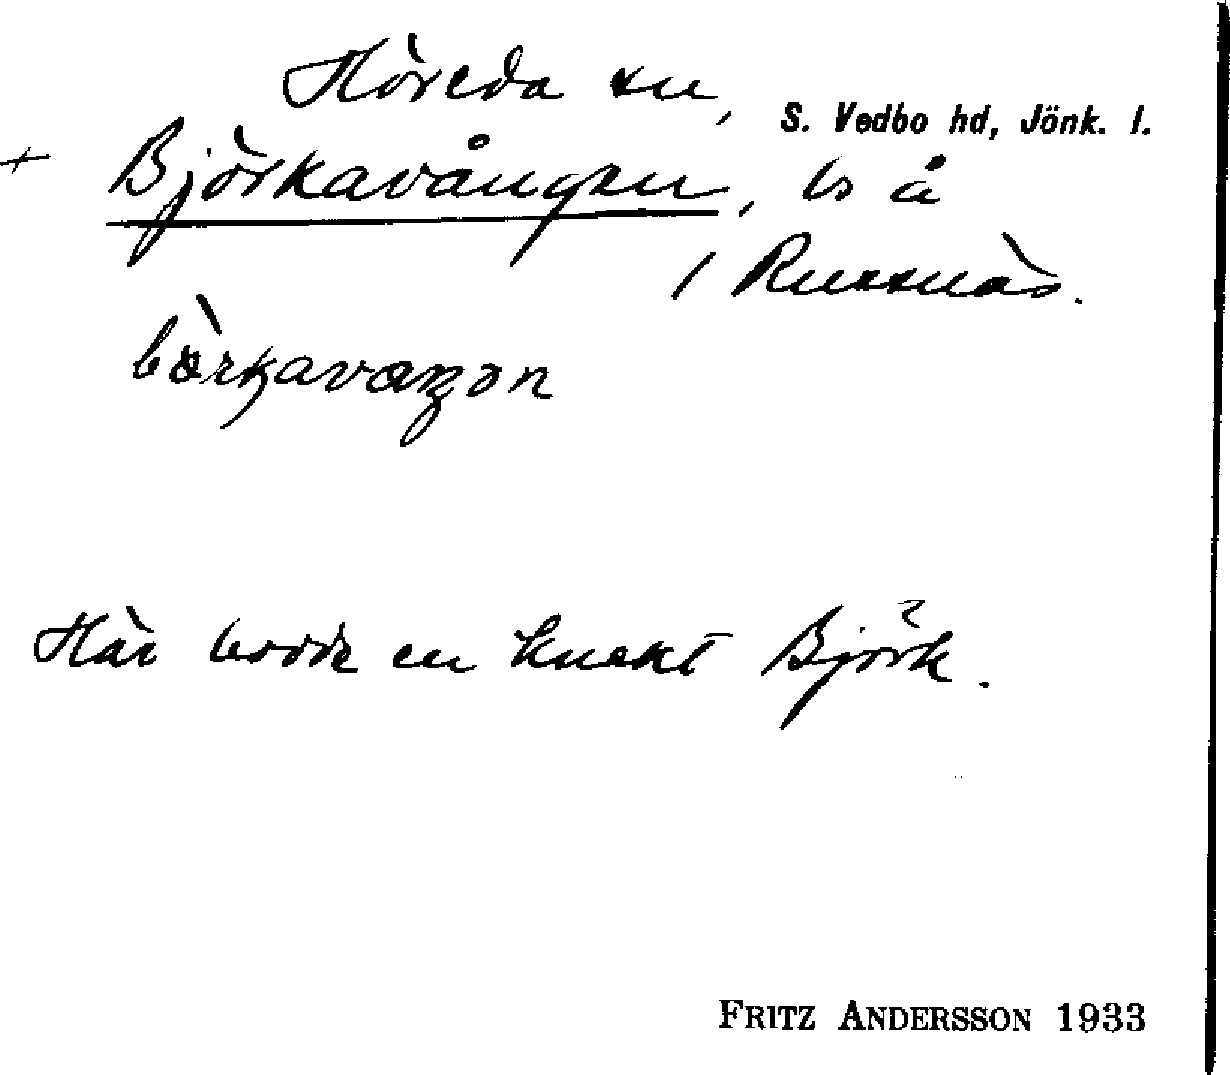 Höreda sn, S. Vedbo hd, Jönk. l.
+ Björkavången, ls å
1 Russnäs.
börkavaŋən
Här bodde en knekt Björk.
FRITZ ANDERSSON 1933